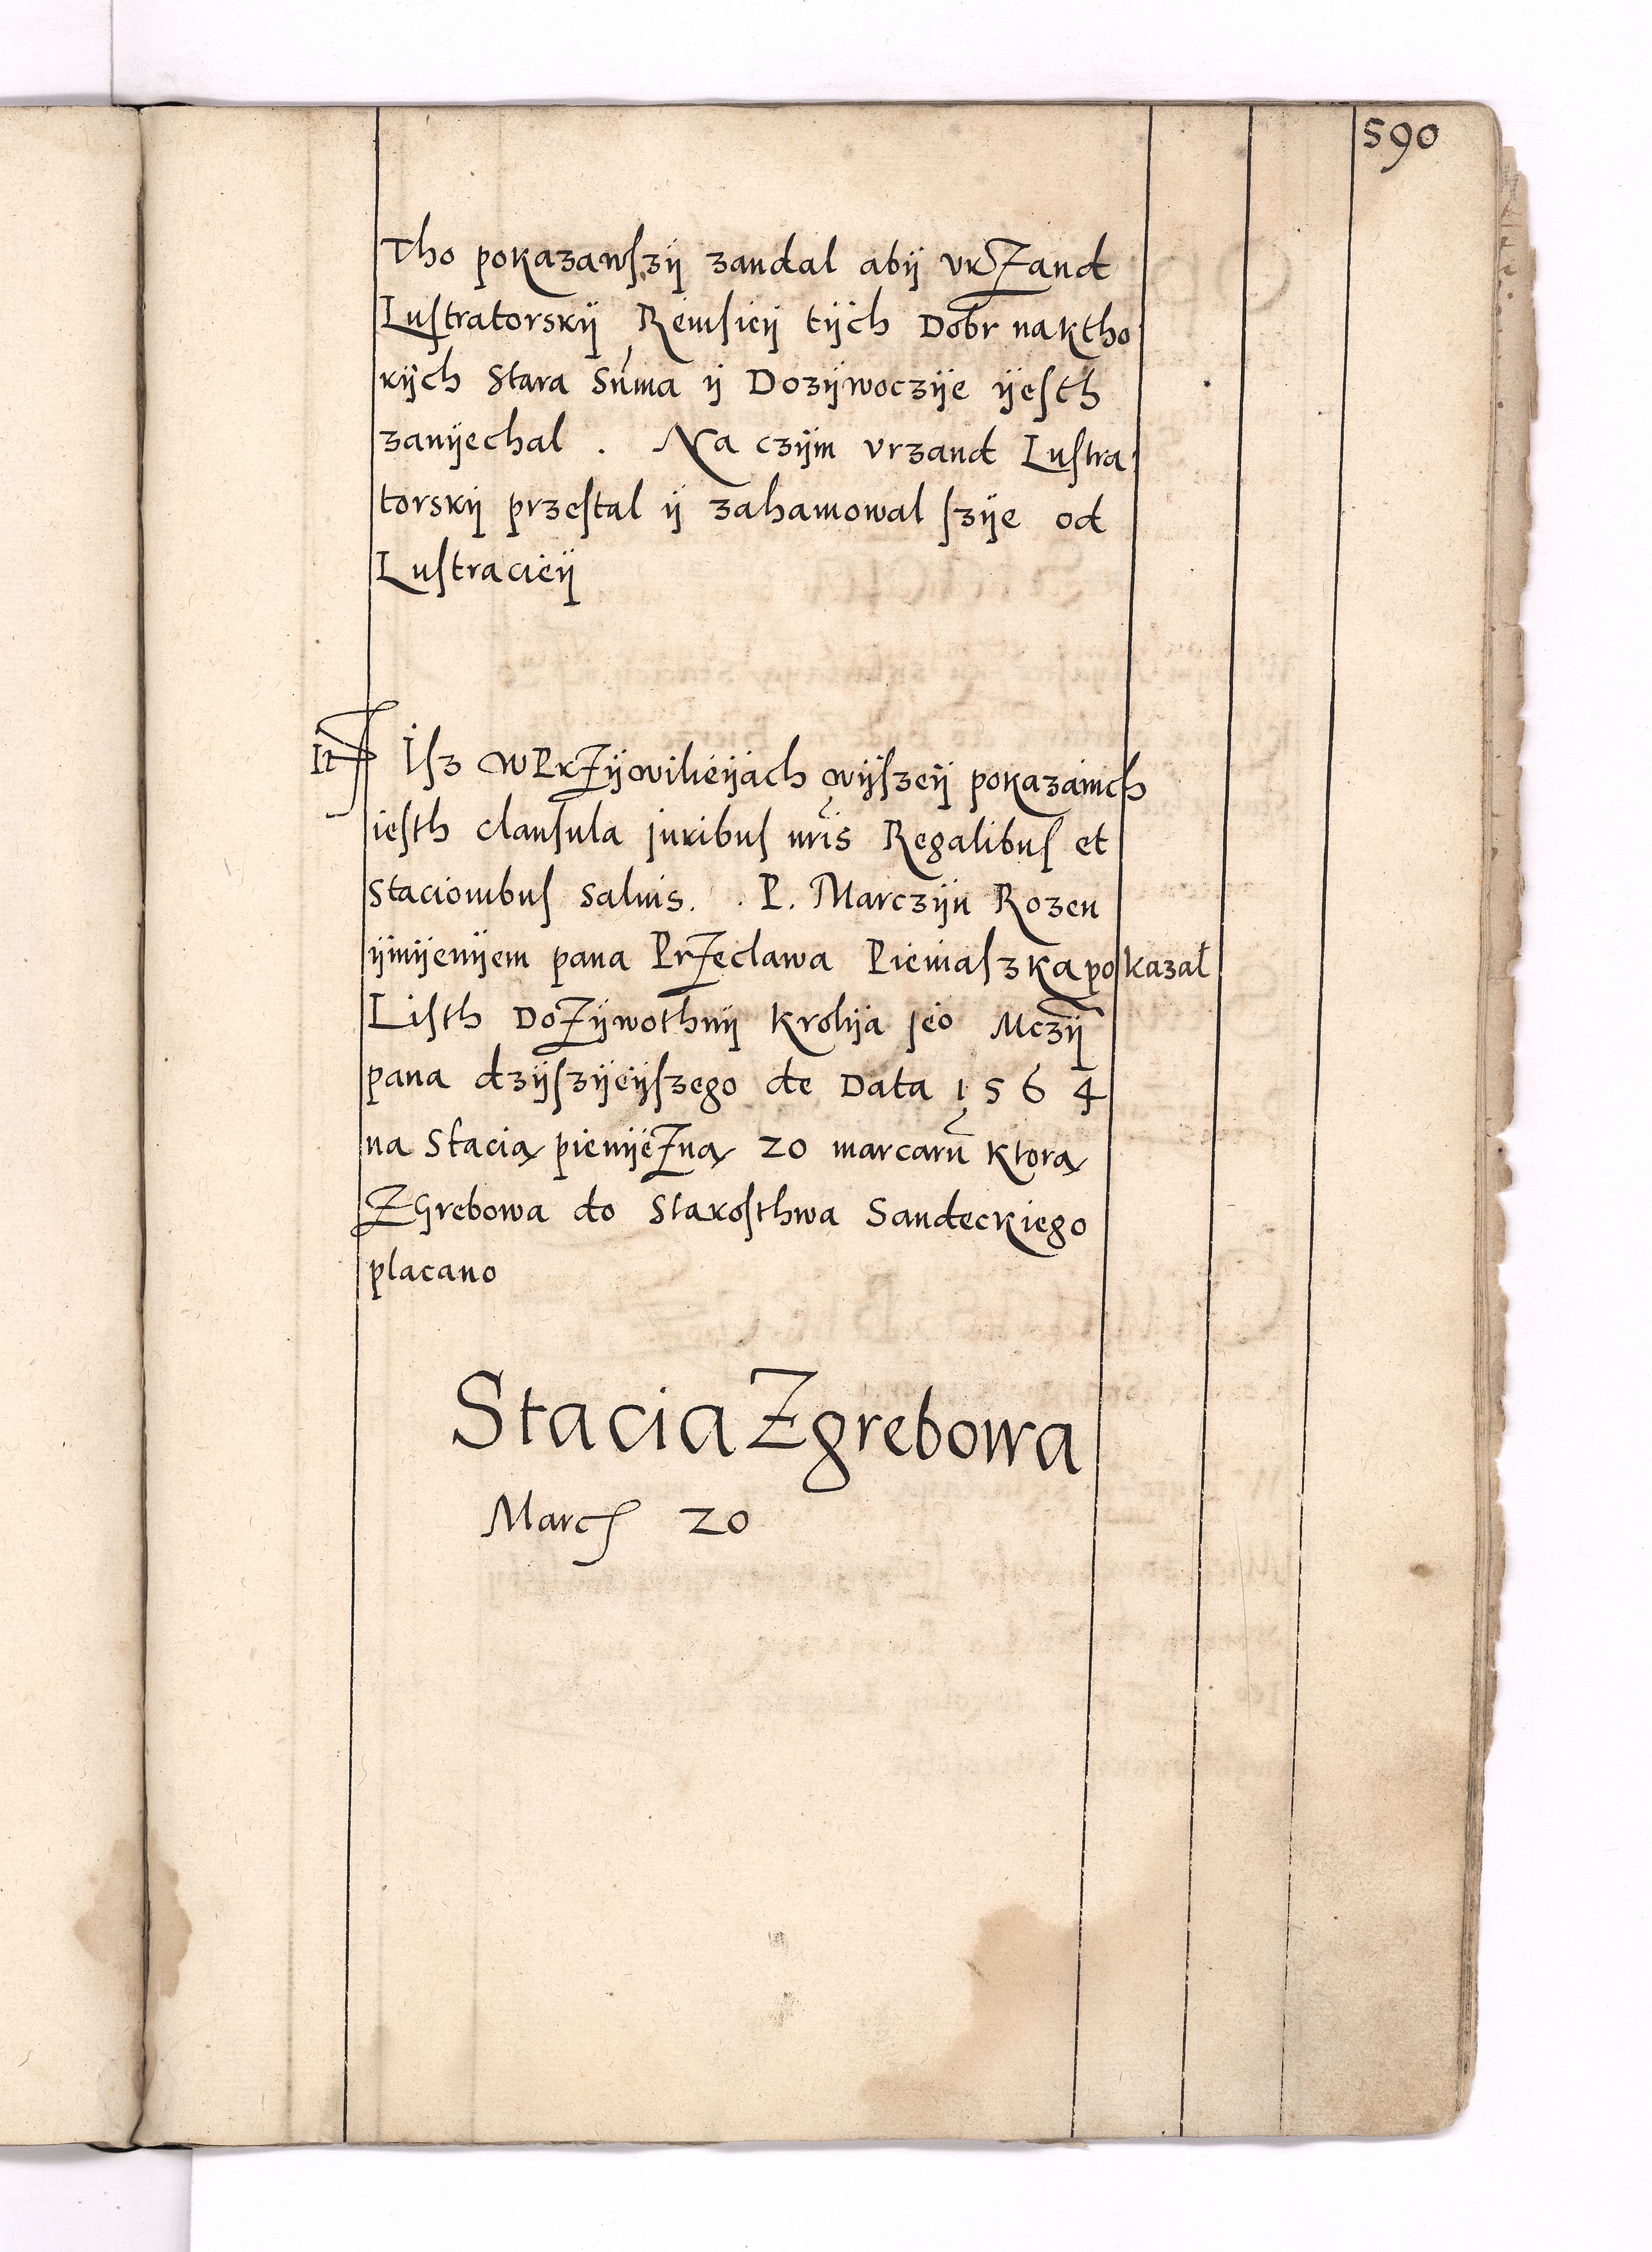 590
Tho pokazawſzÿ zandal abÿ vrZand
Luſtratorskÿ Rewisieÿ tÿch Dobr naktho
rÿch Stara Sūma ÿ Dozÿwoczÿe ÿeſth
zanÿechal . Na czÿm vrzand Luſtra
torskÿ przeſtal ÿ zahamowal ſzÿe od
Luſtracieÿ
It Iſz WPrZÿwilieÿach wÿſzeÿ pokazanich
ieſth clauſula juribuſ nr̄is Regalibuſ et
Stacionibuſ Saluis. . P. Marczÿn Rozen
ÿmÿenÿem pana PrZeclawa Pieniaſzka pokazał
Liſth DoZÿwothnÿ Krolÿa jeo Mczÿ
pana dzÿſzÿeÿſzego de Data 1564
na Stacią pienÿeZną 20 marcarū ktorą
ZGrebowa do Staroſthwa Sandeckiego
placano
Stacia Zgrebowa
Marc 20